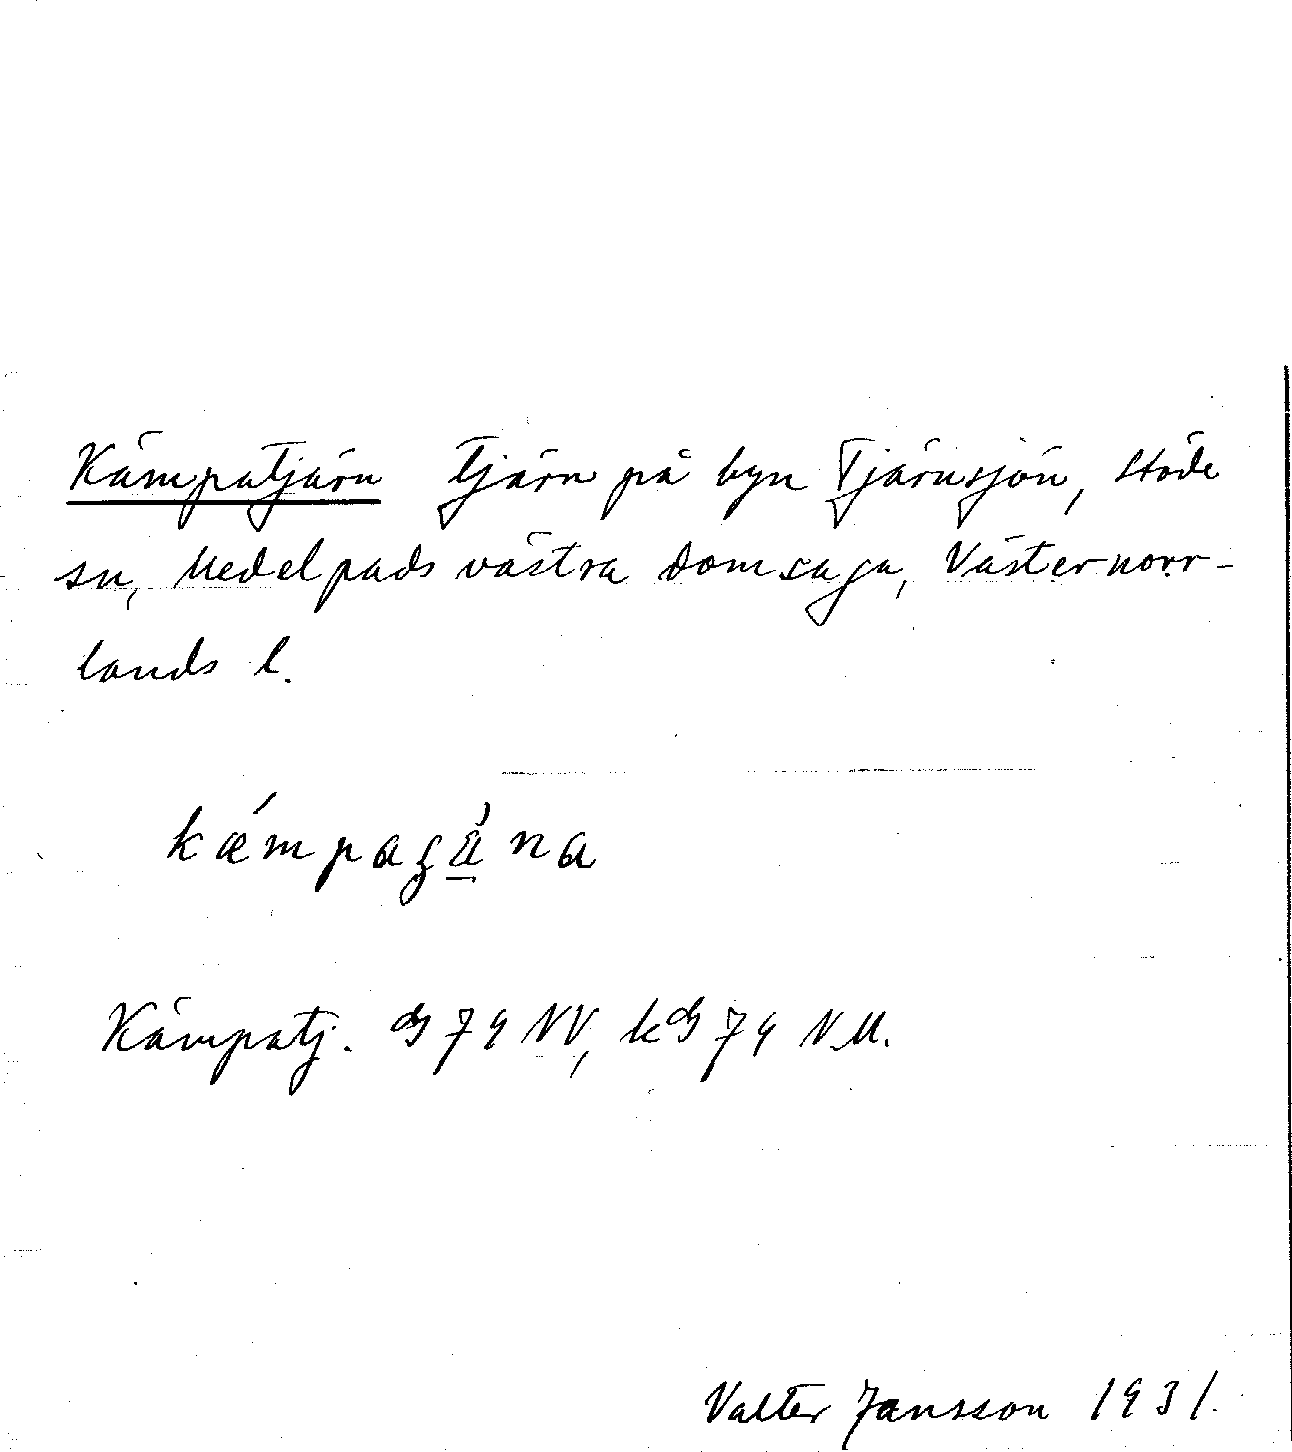 Kämpatjärn Tjärn på byn Tjärnsjön, Stöde
sn, Medelpads västra domsaga, Västernorr-
lands l.
Kämpatj. 74 NV, 74 N.M.
Valter Jansson 1931.